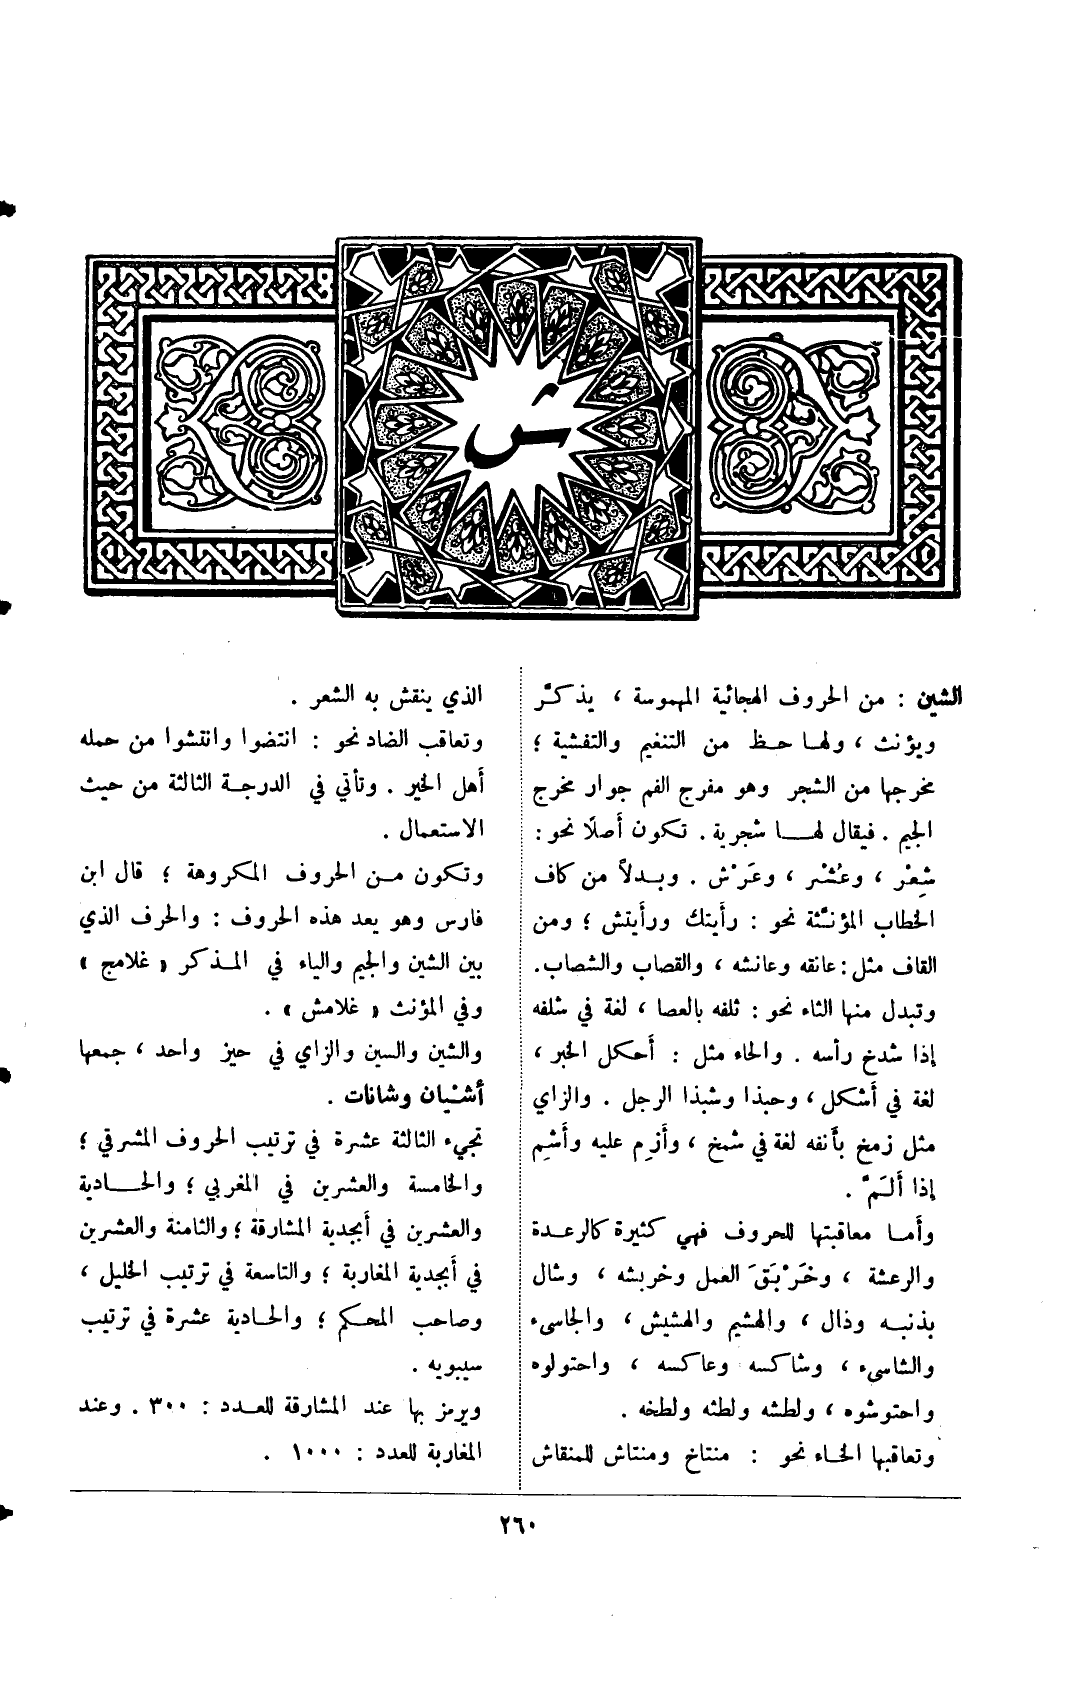 ش
الشين : من الحروف الهجائية المهموسة ، يذكَّر
ويؤنث ، ولها حظ من التنغيم والتفشية ؛
مخرجها من الشجر وهو مفرج الفم جوار مخرج
الجيم . فيقال لها شجرية . تكون أصلًا نحو :
شِعْر ، وعُشْر ، وعَرْش . وبدلاً من كاف
الخطاب المؤنَّثة نحو : رأيتك ورأيتش ؛ ومن
القاف مثل : عانقه وعانشه ، والقصاب والشصاب .
وتبدل منها الثاء نحو : ثلغه بالعصا ، لغة في شلغه
إذا شدخ رأسه . والحاء مثل : أحكل الخبر ،
لغة في أشكل ، وحبذا وشبذا الرجل . والزاي
مثل زمخ بأنفه لغة في شمخ ، وأزم عليه وأشم
إذا ألمَّ .
وأما معاقبتها للحروف فهي كثيرة كالرعدة
والرعشة ، وخَرْبَقَ العمل وخربشه ، وشال
بذنبه وذال ، والهشيم والهشيش ، والجاسيء
والشاسيء ، وشاكسه وعاكسه ، واحتولوه
واحتوشوه ، ولطشه ولطثه ولطخه .
وتعاقبها الخاء نحو : منتاخ ومنتاش للمنقاش
الذي ينقش به الشعر .
وتعاقب الضاد نحو : انتضوا وانتشوا من حمله
أهل الخير . وتأتي في الدرجة الثالثة من حيث
الاستعمال .
وتكون من الحروف المكروهة ؛ قال ابن
فارس وهو يعد هذه الحروف : والحرف الذي
بين الشين والجيم والياء في المذكر « غلامج »
وفي المؤنث « غلامش » .
والشين والسين والزاي في حيز واحد ، جمعها
أشيان وشانات .
تجيء الثالثة عشرة في ترتيب الحروف المشرقي ؛
والخامسة والعشرين في المغربي ؛ والحادية
والعشرين في أبجدية المشارقة ؛ والثامنة والعشرين
في أبجدية المغاربة ؛ والتاسعة في ترتيب الخليل ،
وصاحب المحكم ؛ والحادية عشرة في ترتيب
سيبويه .
ويرمز بها عند المشارقة للعدد : ٣٠٠ . وعند
المغاربة للعدد : ١٠٠٠ .
٢٦٠